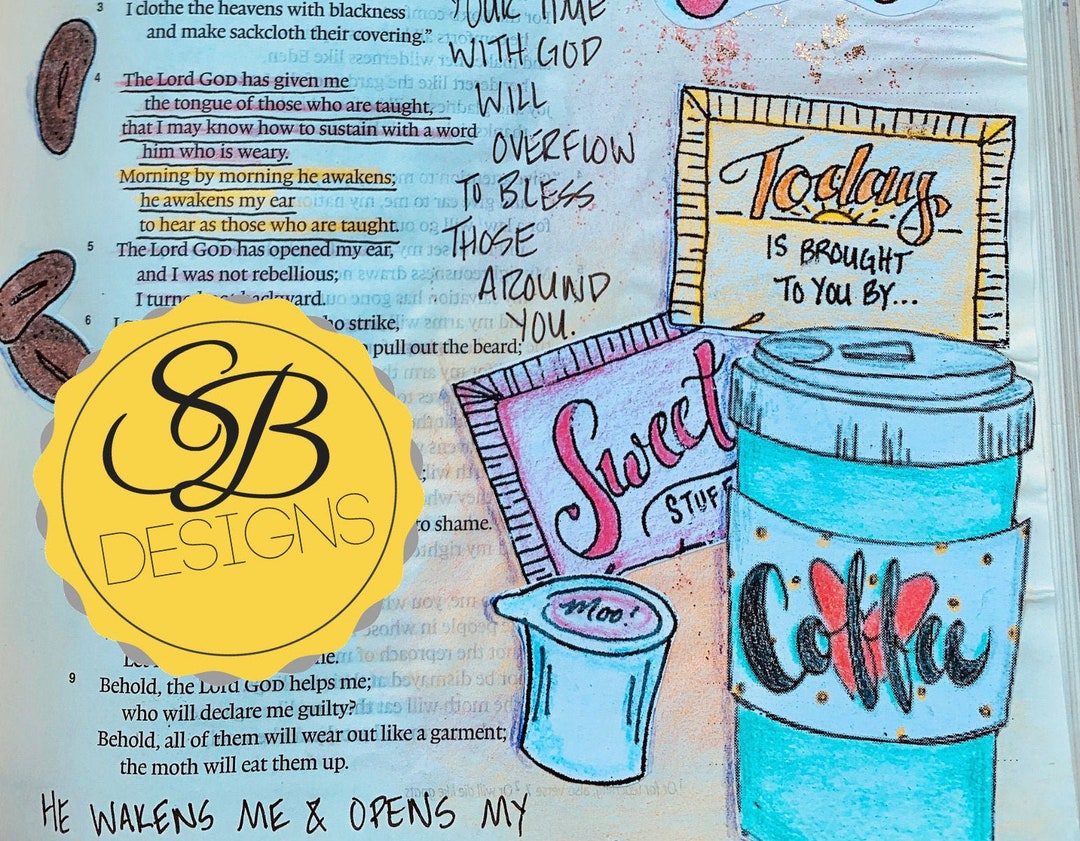 3 I clothe the heavens with blackness
and make sackcloth their covering.”
4 The Lord GOD has given me
the tongue of those who are taught,
that I may know how to sustain with a word
him who is weary.
Morning by morning he awakens;
he awakens my ear
to hear as those who are taught.
5 The Lord GOD has opened my ear,
and I was not rebellious;
I turned not backward.
6
strike,
pull out the beard;
to shame.
9 Behold, the Lord GOD helps me;
who will declare me guilty?
Behold, all of them will wear out like a garment;
the moth will eat them up.
YOUR TIME
WITH GOD
WILL
OVERFLOW
TO BLESS
THOSE
AROUND
YOU.
Today
IS BROUGHT
TO YOU BY...
Sweet
STUFF
Moo!
Coffee
SB
DESIGNS
HE WAKENS ME & OPENS MY